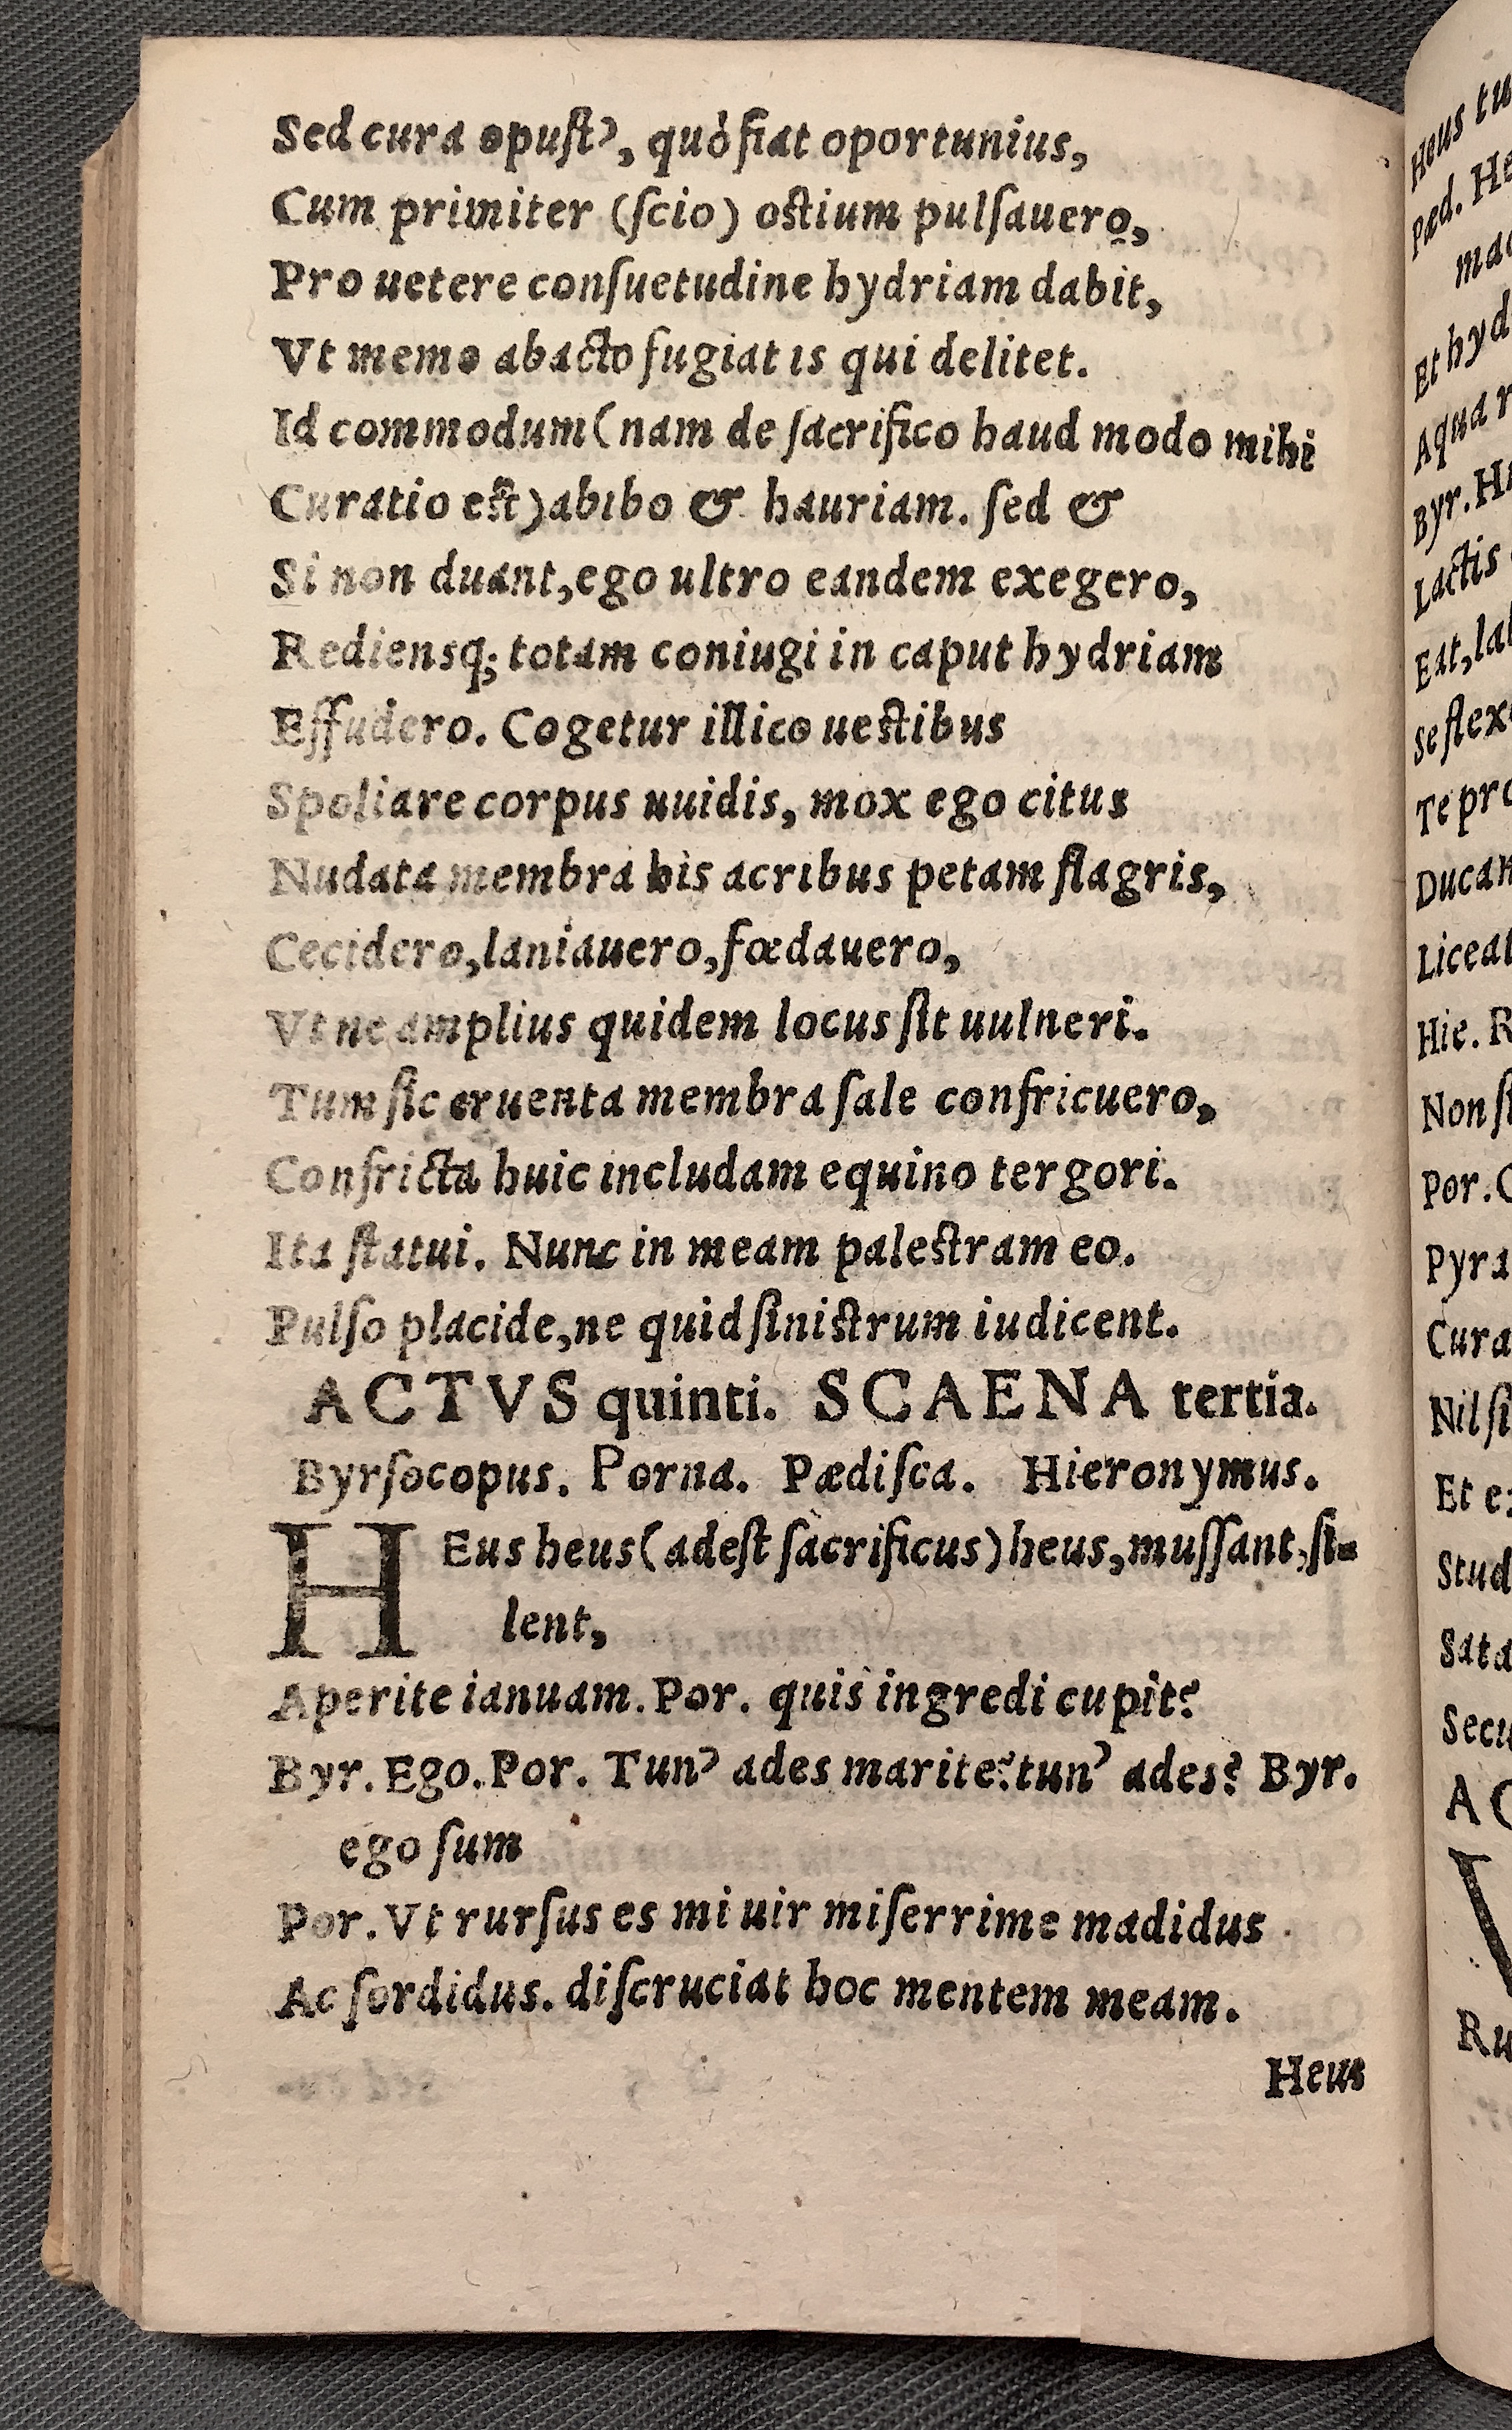 Sed cura opuſtʾ, quò fiat oportunius,
Cum primiter (ſcio) oſtium pulſauero,
Pro uetere conſuetudine hydriam dabit,
Vt memo abacto fugiat is qui delitet.
Id commodum (nam de ſacrifico haud modo mihi
Curatio eſt) abibo & hauriam. ſed &
Si non duant, ego ultro eandem exegero,
Rediensq; totam coniugi in caput hydriam
Effudero. Cogetur illico ueſtibus
Spoliare corpus uuidis, mox ego citus
Nudata membra his acribus petam flagris,
Cecidero, laniauero, fœdauero,
Vt ne amplius quidem locus ſit uulneri.
Tum ſic cruenta membra ſale confricuero,
Confricta huic includam equino tergori.
Ita ſtatui. Nunc in meam paleſtram eo.
Pulſo placide, ne quid ſiniſtrum iudicent.
ACTVS quinti. SCAENA tertia.
Byrſocopus. Porna. Pædiſca. Hieronymus.
HEus heus (adeſt ſacrificus) heus, muſſant, ſi-
lent,
Aperite ianuam. Por. quis ingredi cupit?
Byr. Ego. Por. Tunʾ ades marite? tunʾ ades? Byr.
ego ſum
Por. Vt rurſus es mi uir miſerrime madidus
Ac ſordidus. diſcruciat hoc mentem meam.
Heus
Heus tu
Pæd. He
mac
Et hyd
Aqua r
Byr. H
Lactis
Eat, la
Se flex
Te pro
Ducan
Liceat
Hie. R
Non ſi
Por. C
Pyra
Cura
Nil ſi
Et e
Stud
Sata
Secu
AC
V
Ru